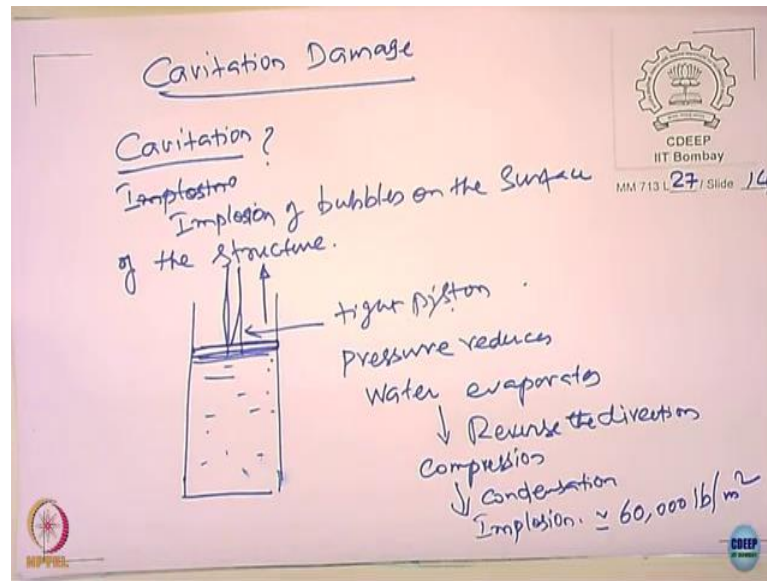 Cavitation Damage
CDEEP
IIT Bombay
MM 713 L 27 / Slide 14
Cavitation ?
Implosino
Implosion of bubbles on the Surface
of the structure.
tight piston
pressure reduces
Water evaporates
↓ Reverse the direction
Compression
↓ condensation
Implosion. ≃ 60,000 lb/m²
NPTEL
CDEEP
IIT BOMBAY